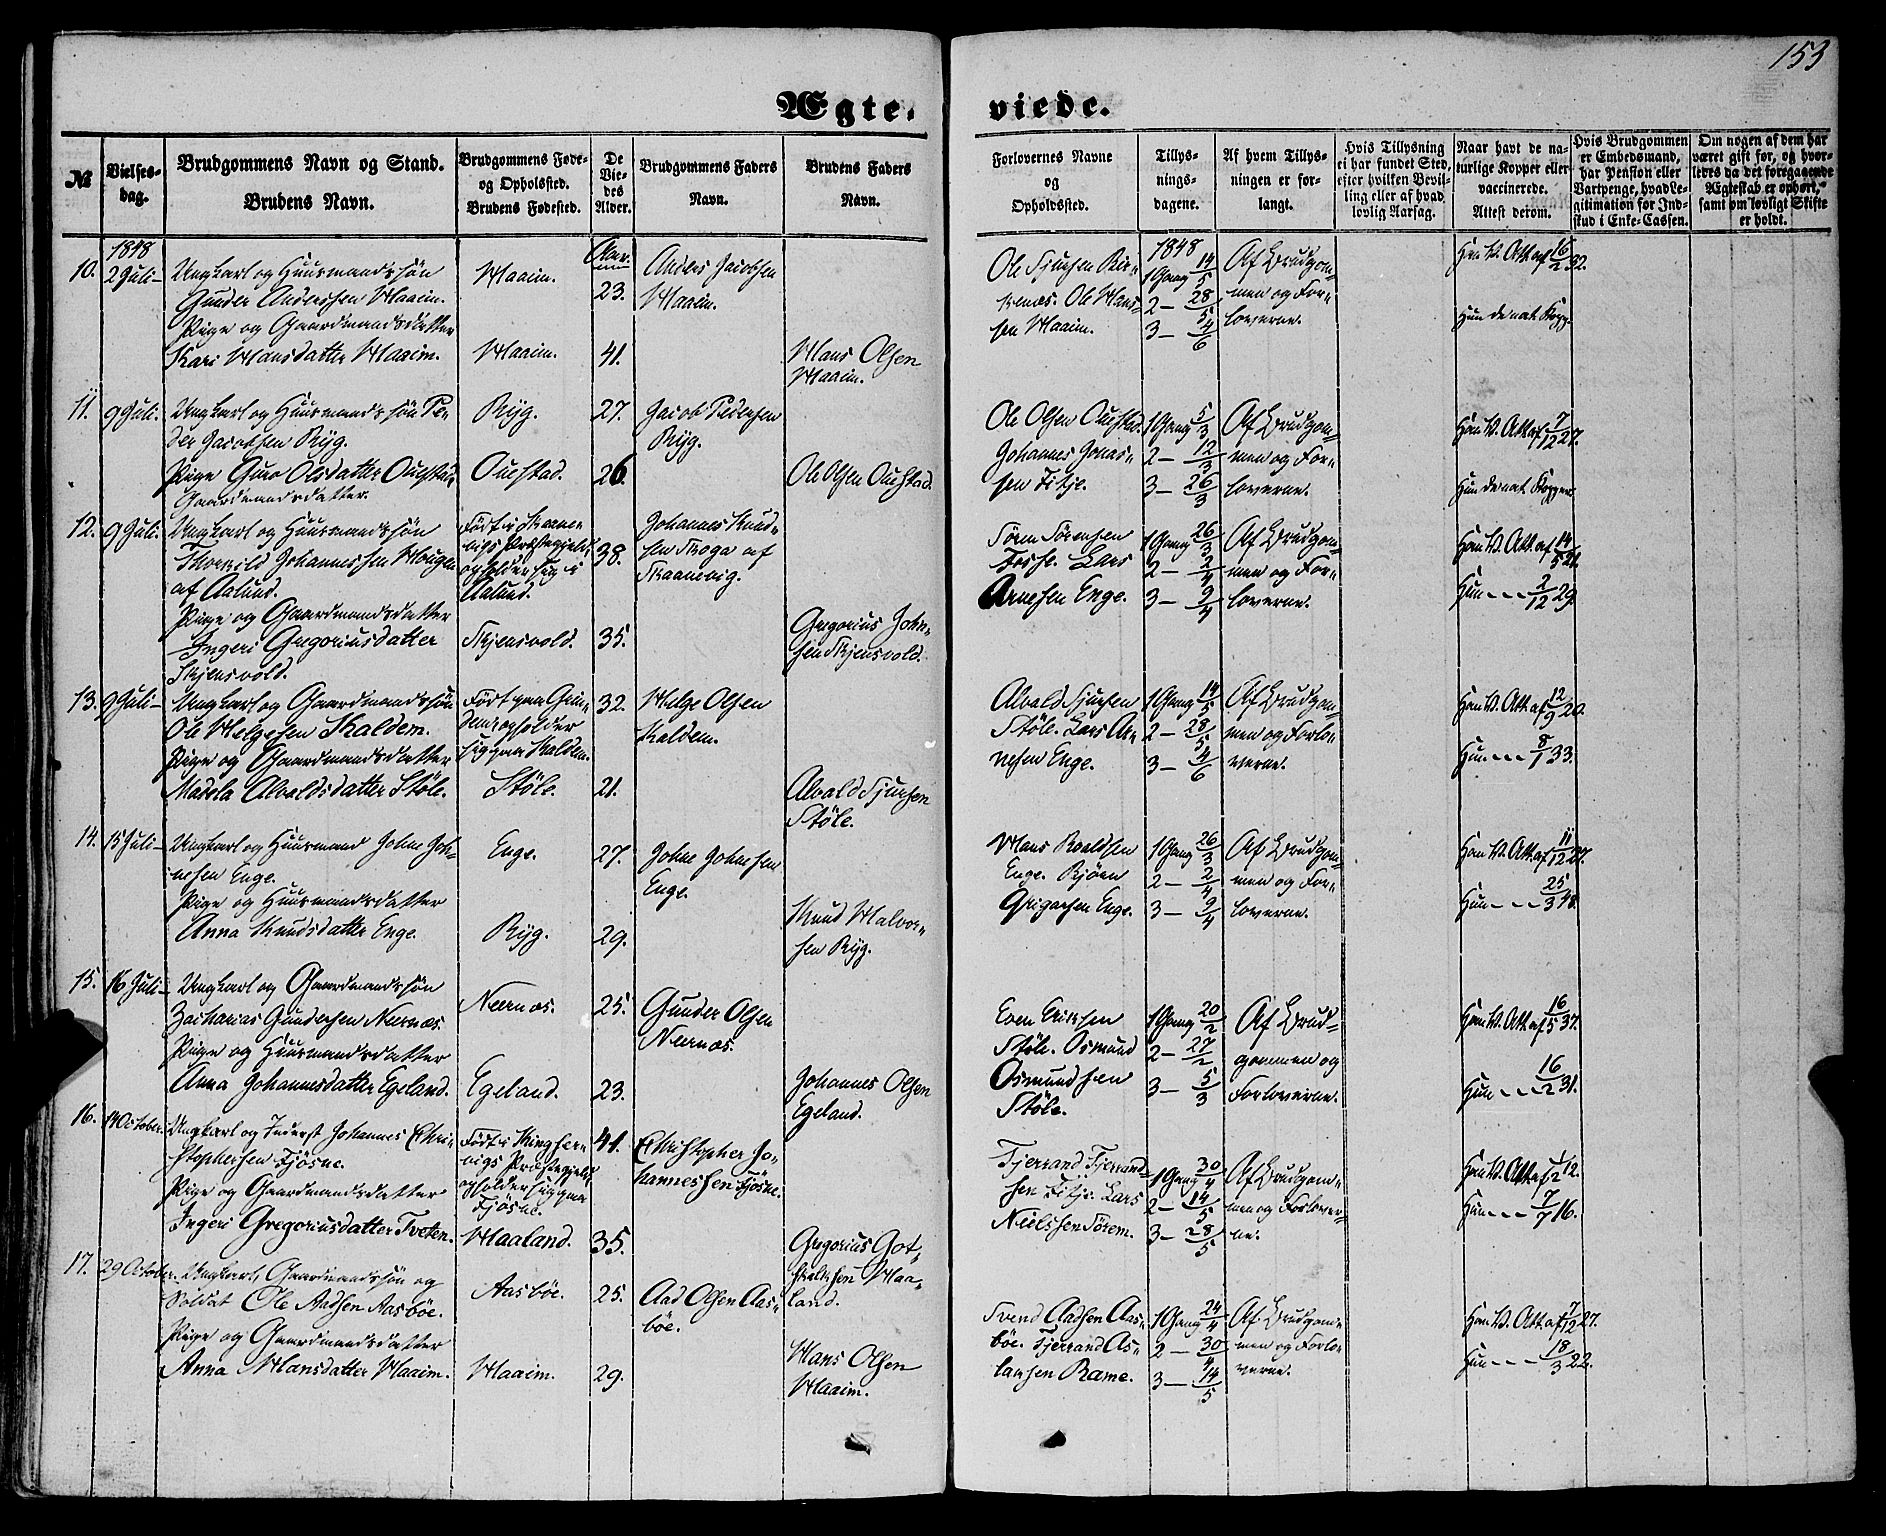 153
Ægte-
viede.
№
Vielses-
dag.
Brudgommens Navn og Stand.
Brudens Navn.
Brudgommens Føde-
og Opholdssted.
Brudens Fødested.
De
Vie-
des
Alder.
Brudgommens Faders
Navn.
Brudens Faders
Navn.
Forlovernes Navne
og
Opholdssted.
Tillys-
nings-
dagene.
Af hvem Tillys-
ningen er for-
langt.
Hvis Tillysning
ei har fundet Sted,
efter hvilken Bevil-
ling eller af hvad
lovlig Aarsag.
Naar havt de na-
turlige Kopper eller
vaccinerede.
Attest derom.
Hvis Brudgommen
er Embedsmand,
har Pension eller
Vartpenge, hvad Le-
gitimation for Ind-
skud i Enke-Cassen.
Om nogen af dem har
været gift før, og hvor-
ledes da det foregaaende
Ægteskab er ophørt,
samt om lovligt Skifte
er holdt.
1848
10. 2 Juli-
Ungkarl og Huusmandssøn
Gunder Anderssen Haaim.
Pige og Gaardmandsdatter
Kari Hansdatter Haaim.
Haaim.
Haaim.
Aar
23.
41.
Anders Jacobsen
Haaim.
Hans Olsen
Haaim.
Ole Sjursen Bir-
kenæs. Ole Hans-
sen Haaim.
1848
1 Gang 14/5
2- 28/5
3- 4/6
Af Brudgom-
men og For-
loverne.
Han V. Att. af 16/2 32.
Hun de nat. Kopp.
11. 9 Juli.
Ungkarl og Huusmandssøn Pe-
der Jacobsen Ryg.
Pige Guro Olsdatter Ouestad,
Gaardmandsdatter.
Ryg.
Ouestad.
27.
26.
Jacob Pedersen
Ryg.
Ole Olsen Ouestad.
Ole Olsen Ouestad.
Johannes Jonas-
sen Fitje.
1 Gang 5/3
2- 12/3
3- 26/3
Af Brudgom-
men og For-
loverne.
Han V. Att. af 7/12 27.
Hun de nat. Kopper.
12. 9 Juli.
Ungkarl og Huusmandssøn
Thorkild Johannessen Hougen
af Aalund.
Pige og Gaardmandsdatter
Ingeri Gregoriusdatter
Skjensvold.
Født i Skaane-
vigs Præstegjeld,
opholder sig i
Aalund.
Skjensvold.
38.
35.
Johannes Knud-
sen Skoga af
Skaanevig.
Gregorius John-
sen Skjensvold.
Søren Sørensen
Fosse. Lars
Arnesen Enge.
1 Gang 26/3
2- 2/4
3- 9/4
Af Brudgom-
men og For-
loverne.
Han V. Att. af 14/5 21.
Hun - - - 2/12 29.
13. 9 Juli-
Ungkarl og Gaardmandssøn
Ole Helgesen Skaldem.
Pige og Gaardmandsdatter
Madela Alvaldsdatter Støle.
Født paa Grin-
dem, opholder
sig paa Skaldem.
Støle.
32.
21.
Helge Olsen
Skaldem.
Alvald Sjursen
Støle.
Alvald Sjursen
Støle. Lars Ar-
nesen Enge.
1 Gang 14/5
2- 28/5
3- 4/6
Af Brudgom-
men og Forlo-
verne.
Han V. Att. af 12/9 20.
Hun - - - 8/1 33.
14. 15 Juli-
Ungkarl og Huusmand Johne Joh-
nesen Enge.
Pige og Huusmandsdatter
Anna Knudsdatter Enge.
Enge.
Ryg.
27.
29.
Johne Johnesen
Enge.
Knud Halvor-
sen Ryg.
Hans Roaldsen
Enge. Bjørn
Grigarsen Enge.
1 Gang 26/3
2- 2/4
3- 9/4
Af Brudgom-
men og For-
loverne.
Han V. Att. af 11/12 27.
Hun - - - 25/3 48.
15. 16 Juli-
Ungkarl og Gaardmandssøn
Zacharias Gundersen Neernæs.
Pige og Huusmandsdatter
Anna Johannesdatter Egeland.
Neernæs.
Egeland.
25.
23.
Gunder Olsen
Neernæs.
Johannes Olsen
Egeland.
Even Eriksen
Støle. Osmund
Osmundsen
Støle.
1 Gang 20/2
2- 27/2
3- 5/3
Af Brud-
gommen og
Forloverne.
Han V. Att. af 16/5 37.
Hun - - - 16/2 31.
16.
Ungkarl og Inderst Johannes Chri-
stophersen Tjøsne.
Pige og Gaardmandsdatter
Ingeri Gregoriusdatter Tveten.
Født i Kingser-
vigs Præstegjeld,
opholder sig paa
Tjøsne.
Haaland.
41.
35.
Christopher Jo-
hannessen Tjøsne.
Gregorius Got-
skalksen Haa-
land.
Tjerrand Tjerrand-
sen Fitje. Lars
Nielssen Sørem.
1 Gang 30/4
2- 14/5
3- 28/5
Af Brudgom-
men og Forlover-
ne.
Han V. Att. af 1/2 12.
Hun - - - 7/7 16.
17. 29 October.
Ungkarl, Gaardmandssøn og
Soldat Ole Aadsen Aasbøe.
Pige og Gaardmandsdatter
Anna Hansdatter Haaim.
Aasbøe.
Haaim.
25.
29.
Aad Olsen Aas-
bøe.
Hans Olsen
Haaim.
Svend Aadsen Aas-
bøe. Tjerrand As-
laksen Rame.
1 Gang 24/4
2- 30/4
3- 14/5
Af Brudgom-
men og Forlo-
verne.
Han V. Att. af 7/12 27.
Hun - - - 18/3 22.